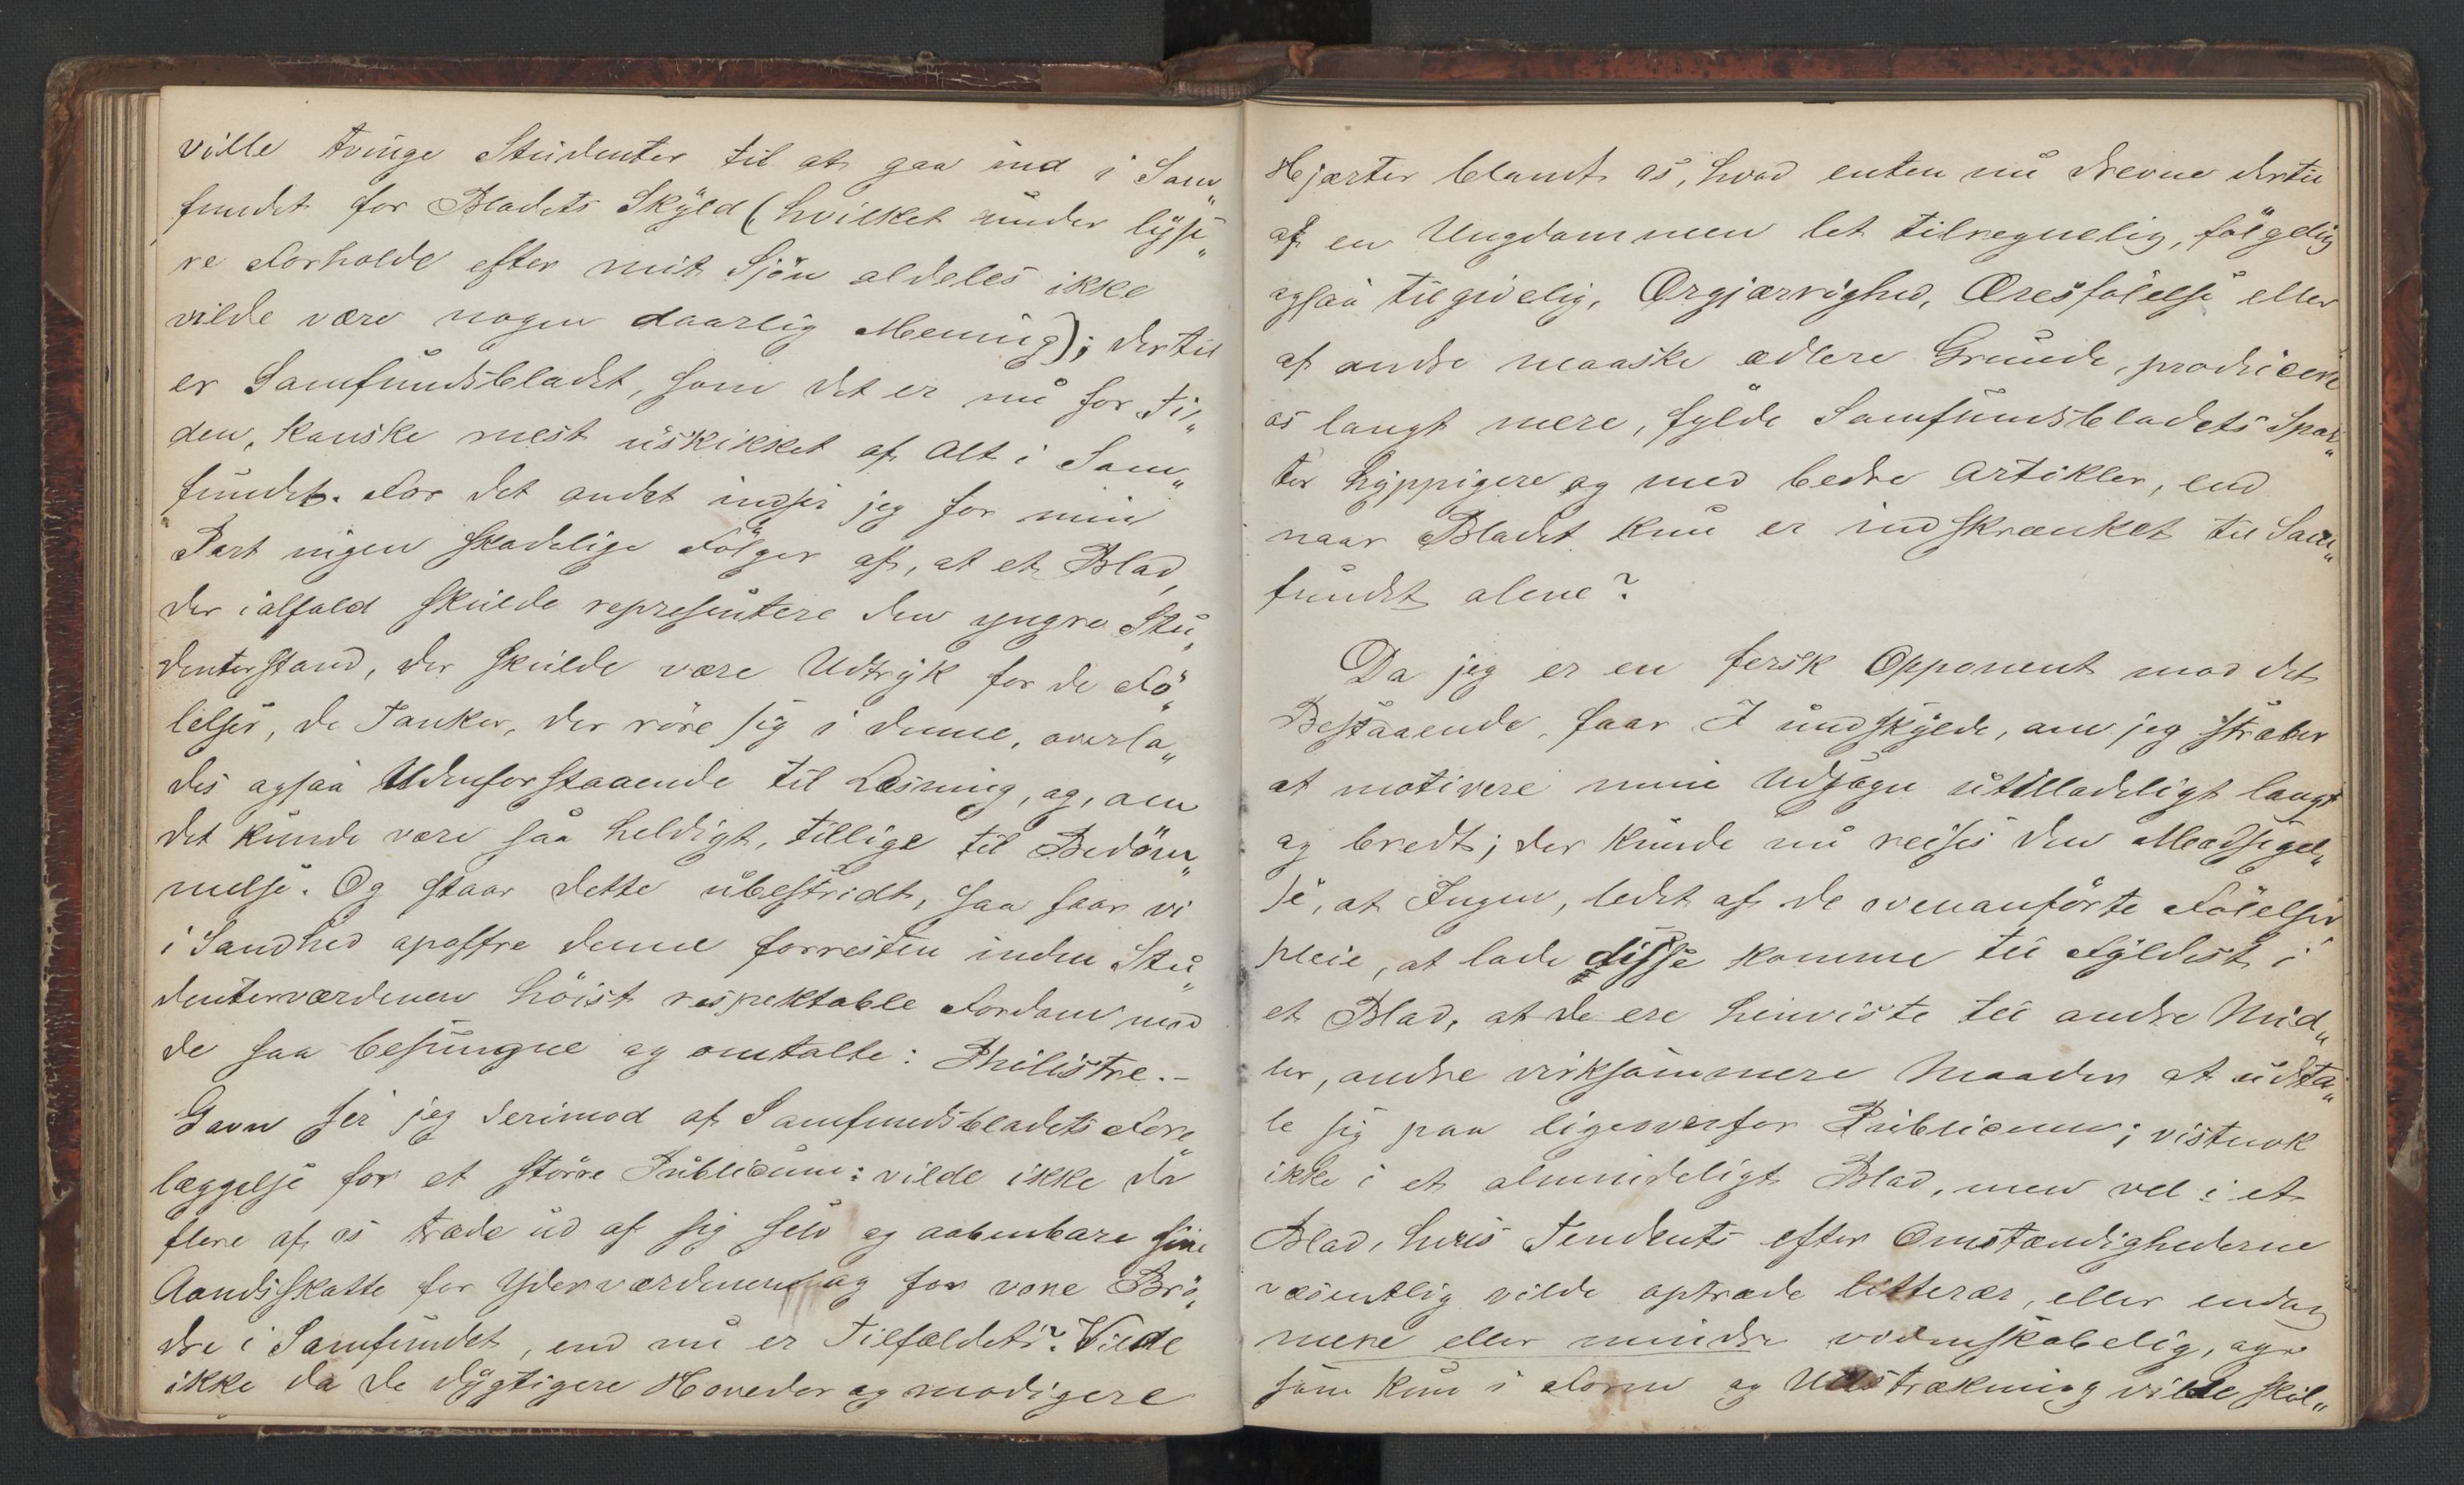 ville tvinge Studenter til at gaa ind i Sam„
fundet for Bladets Skyld (hvilket under lyse„
re Forholde efter mit Sjön aldeles ikke
vilde være nogen daarlig Mening); dertil
er Samfundsbladet, som det er nu for Ti„
den, kanske mest uskikket af Alt i Sam„
fundet. For det andet indser jeg for min
Part ingen skadelige Fölger af, at et Blad,
der ialfald skulde repræsentere den yngre Stu„
denterstand, der skulde være Udtryk for de Fö„
lelser, de Tanker, der röre sig i denne, overla„
des ogsaa Udenforstaaende til Læsning, og, om
det kunde være saa heldigt, tillige til Bedöm„
melse. Og staar dette ubestridt, saa faar vi
i Sandhed opoffre denne forresten inden Stu„
denterverdenen höist respektable Fordom mod
de saa besungne og omtalte: Philistre.-
Gavn ser jeg derimod af Samfundsbladets Fore
læggelse for et större Publicum: vilde ikke da
flere af os træde ud af sig selv og aabenbare sine
Aandsskatte for Yderverdenen og for vore Brö„
dre i Samfundet, end nu er Tilfældet? Vilde
ikke da de dygtigere Hoveder og modigere
Hjærter blandt os, hvad enten nu drevne dertil
af en Ungdommen let tilregnelig, fölgelig
ogsaa tilgivelig, Ærgjærrighed, Æresfölelse eller
af andre maaske ædlere Grunde, producere
os langt mere, fylde Samfundsbladets Spal„
ter hyppigere og med bedre Artikler, end
naar Bladet kun er indskrænket til Sam„
fundet alene?
Da jeg er en fersk Opponent mod det
Bestaaende, faar I undskylde, om jeg stræber
at motivere mine Udsagn utilladeligt langt
og bredt; der kunde nu reises den Modsigel„
se, at Ingen, ledet af de ovenanförte Fölelser
pleie, at lade disse komme til Fyldest i
et Blad, at de ere henviste til andre Mid„
ler, andre virksommere Maader at udta„
le sig paa ligeoverfor Publicum; vistnok
ikke i et almindeligt Blad, men vel i et
Blad, hvis Tendents efter Omstændighederne
væsentlig vilde optræde litterær, eller endog
mere eller mindre videnskabelig, og
som kun i Form og Udstrækning vilde skil„